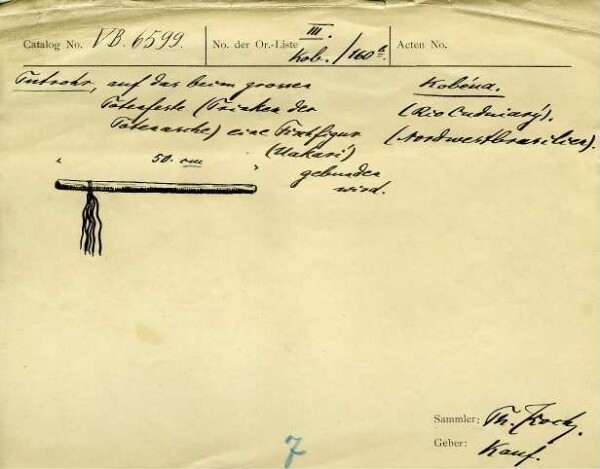 Catalog No. VB. 6599.
No. der Or.-Liste III. Kob./160 a.
Acten No.
Tutrohr, auf das beim grossen
Totenfeste (Trinken der
Totenasche) eine Fischfigur
(Uakari)
gebunden
wird.
Kobéua.
(Rio Cuduiarý).
(Nordwestbrasilien).
50. cm
Sammler: Th. Koch.
Geber: Kauf.
7